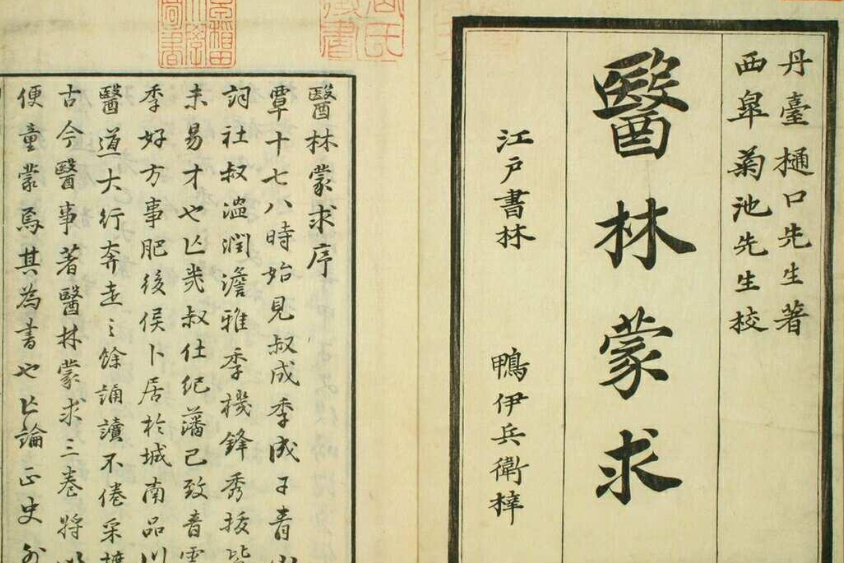 丹臺樋口先生著
西皐菊池先生校
醫林蒙求
江戸書林 鴨伊兵衛梓
醫林蒙求序
覃十七八時始見叔成季成于青山
詞社叔溫潤澹雅季機鋒秀拔皆
未易才也亡幾叔仕紀藩已致音
季好方事肥後侯卜居於城南品川
醫道大行奔走之餘誦讀不倦采摭
古今醫事著醫林蒙求三卷將
便童蒙焉其為書也亡論正史